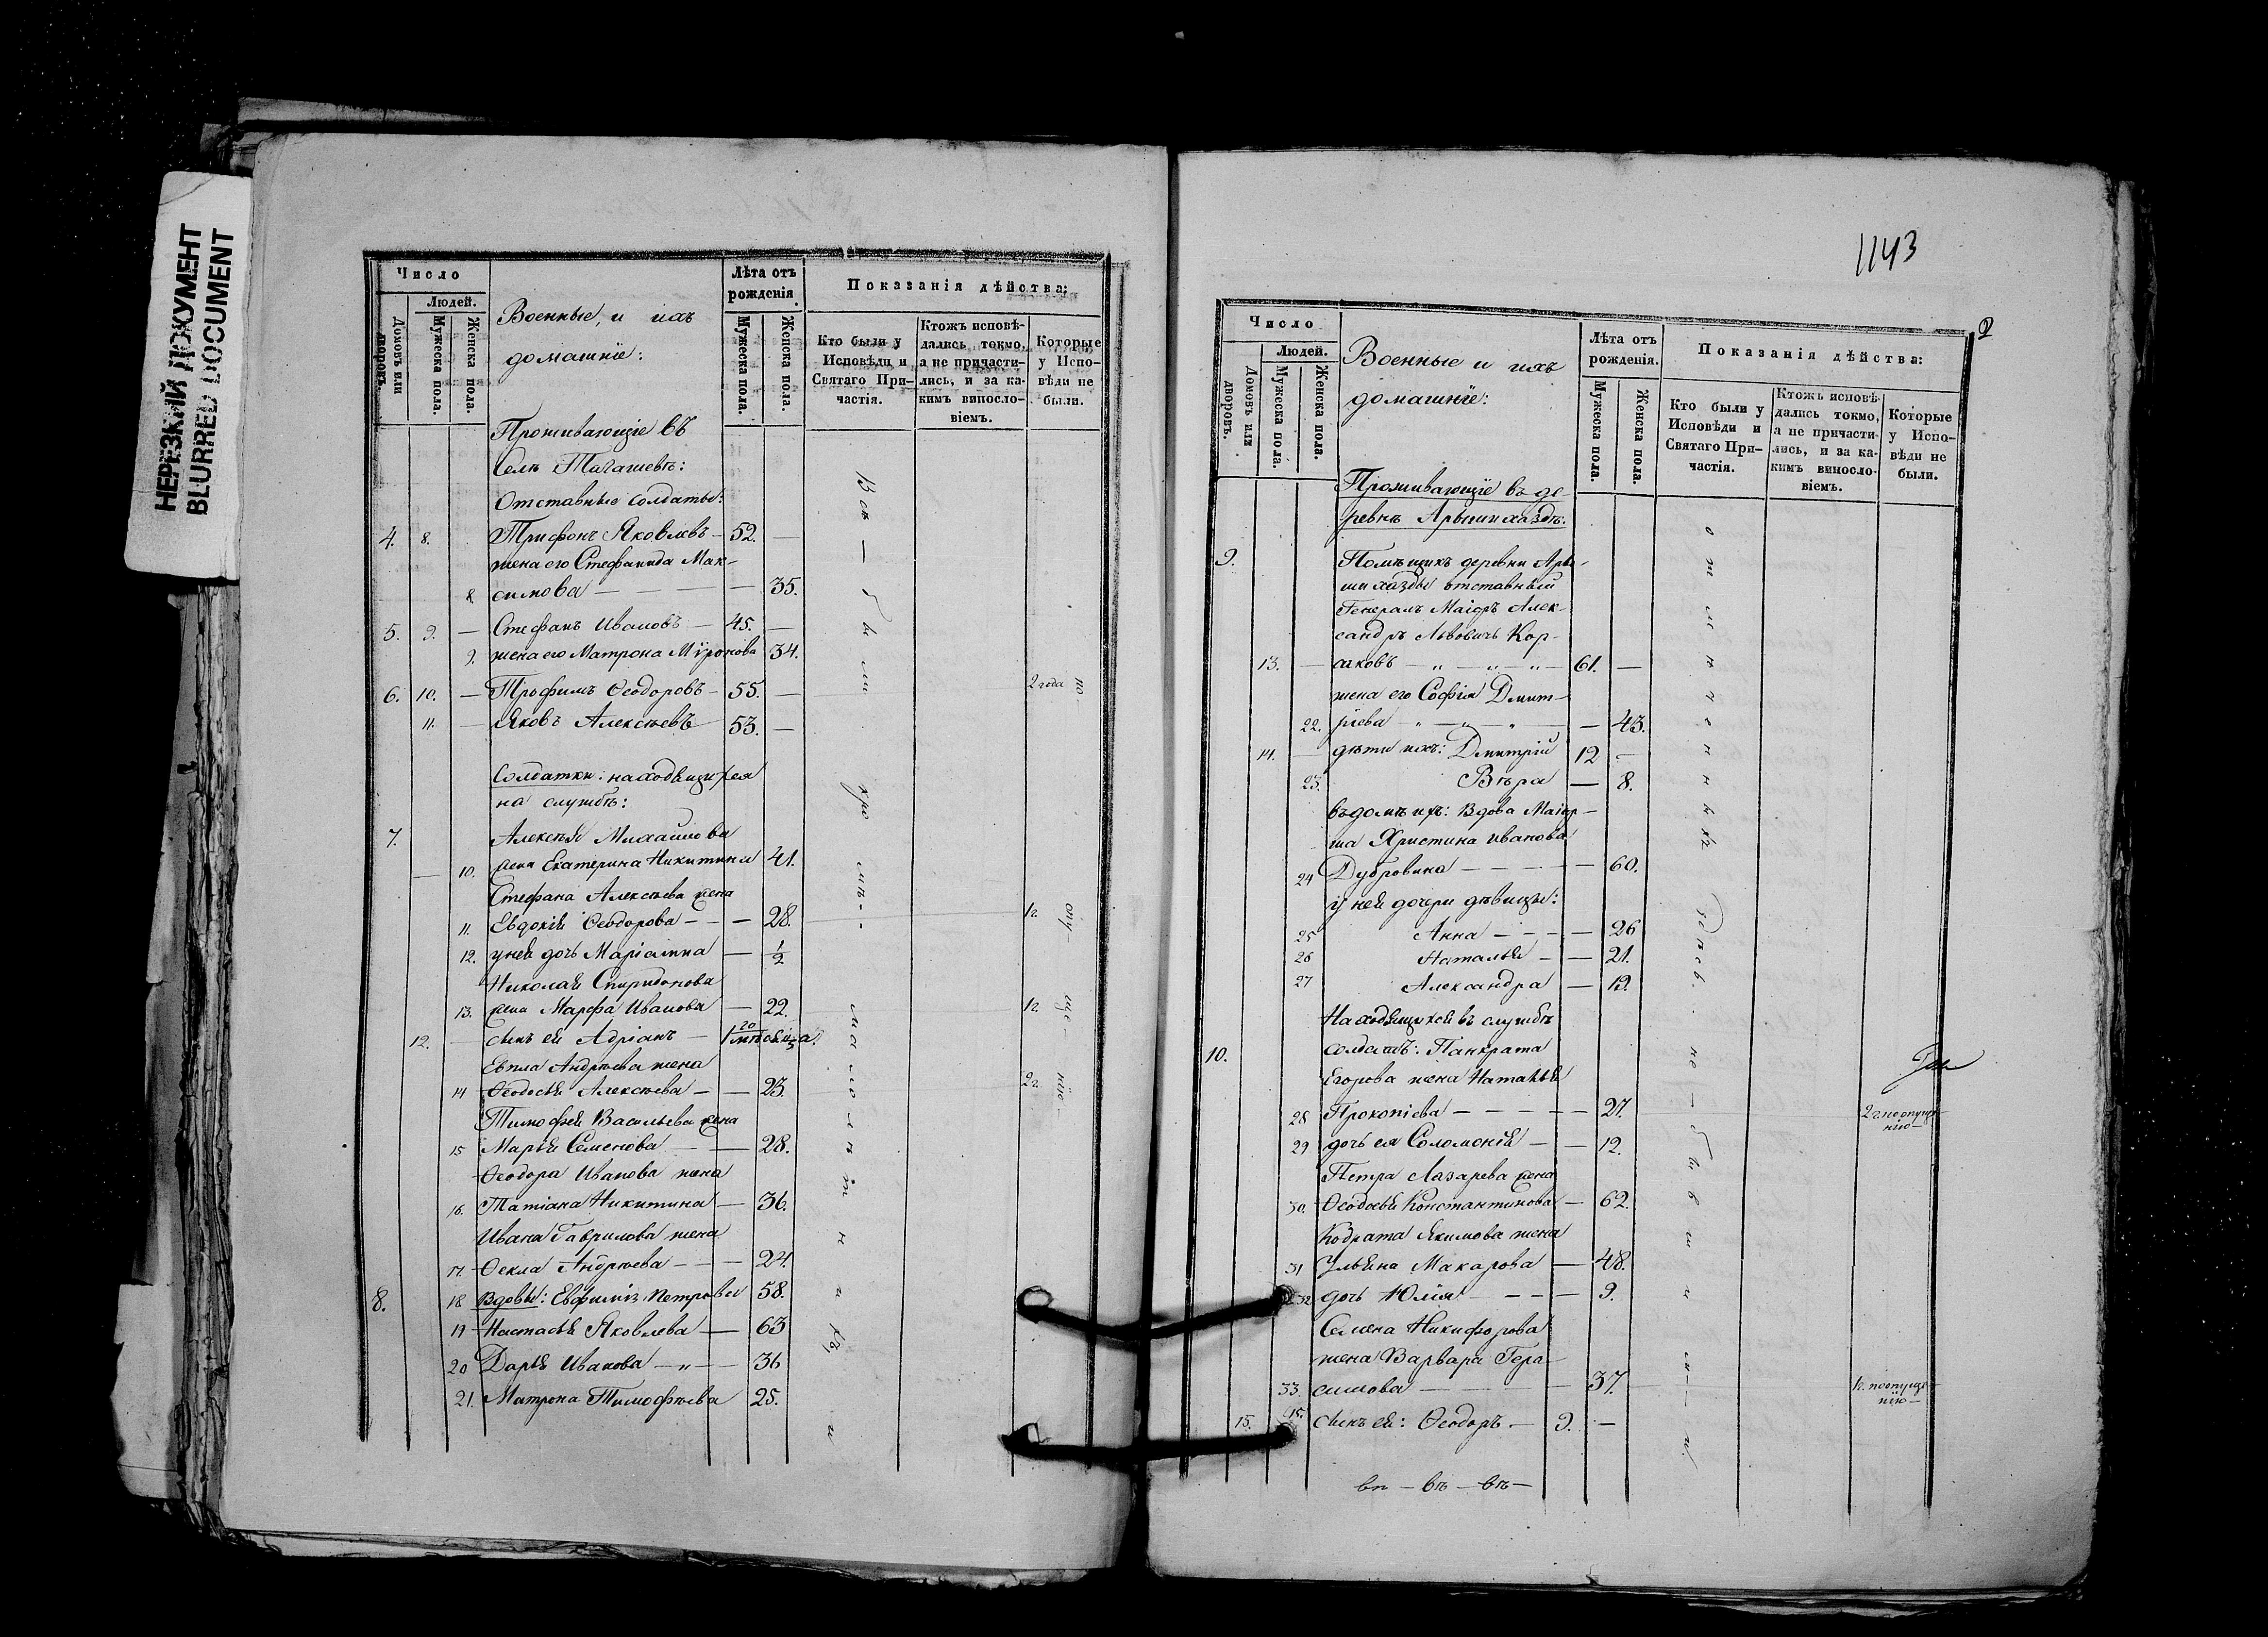 НЕРЕЗКИЙ ДОКУМЕНТ
BLURRED DOCUMENT
Число
Людей.
Домовъ или дворовъ.
Мужеска пола.
Женска пола.
Военные, и ихъ
домашніе:
Лѣта отъ
рожденія
Мужеска пола.
Женска пола.
Показанія дѣйства:
Кто были у
Исповѣди и
Святаго При-
частія.
Ктожъ исповѣ-
дались токмо,
а не причасти-
лись, и за ка-
кимъ виносло-
віемъ.
Которые
у Испо-
вѣди не
были.
Проживающіе въ
селѣ
Отставные солдаты:
4. 8. Трифонъ Яковлевъ – 52. —
жена его Стефанида Мак-
8. симова — — — — 35.
5. 9. — Стефанъ Ивановъ — 45. —
9. жена его Матрона Миронова 34.
6. 10. — Трофимъ Ѳеодоровъ – 55. — 2 года по
11. — Яковъ Алексѣевъ 53. —
Солдатки: находящихся
на службѣ:
7. Алексѣя Михайлова
— 10. жена Екатерина Никитина 41.
Стефана Алексѣева жена
11. Евдокія Ѳеодорова – – — 28. 1 г. опу-
12. у ней дочь Маріамна — 1/2
Николая Спиридонова
13. жена Марѳа Иванова — 22. 1 г. ще-
12. — сынъ ея Адріанъ —
Евпла Андреева жена
14 Ѳеодосья Алексѣева — — 23. 2 г. нію-
Тимофея Васильева жена
15 Марья Семенова — — 28.
Ѳеодора Иванова жена
16. Татіана Никитина — 36.
Ивана Гаврилова жена
17. Ѳекла Андреева — — — 24.
8. 18 Вдовы: Евфимія Петрова 58.
19 Настасья Яковлева — 63
20 Дарья Иванова — „ — — 36
21. Матрона Тимофѣева 25.
1143
2
Число
Людей.
Домовъ или дворовъ.
Мужеска пола.
Женска пола.
Военные и ихъ
домашніе:
Лѣта отъ
рожденія.
Мужеска пола.
Женска пола.
Показанія дѣйства:
Кто были у
Исповѣди и
Святаго При-
частія.
Ктожъ исповѣ-
дались токмо,
а не причасти-
лись, и за ка-
кимъ виносло-
віемъ.
Которые
у Испо-
вѣди не
были.
Проживающіе въ де-
ревнѣ
9. Помѣщикъ деревни
отставный
Генералъ Маіоръ Алек-
сандръ Львовичъ Кор-
13. — саковъ — „ — „ — „ — 61. —
жена его Софія Дмит-
22. ріева — „ — „ — „ — — 43.
14. — дѣти ихъ: Дмитрій 12 —
23. Вѣра — 8.
въ домѣ ихъ: вдова Маіор-
ша Христина Иванова
24 Дубровина — — — — — 60.
у ней дочери дѣвицы:
25 Анна — — — — 26
26 Наталья – — 21.
27 Александра — 19.
Находящихся въ службѣ
10. солдатъ: Панкрата
Егорова жена Наталья
28 Прокопіева — — — — — 27. 2 г. по опуще-
нію—
29 дочь ея Соломонія — — 12.
Петра Лазарева жена
30. Ѳеодосья Константинова — 62.
Кодрата Якимова жена
31 Ульяна Макарова — 48.
32 дочь Юлія — — — — 9.
Семена Никифорова
жена Варвара Гера-
33. симова — — — 37. 1 г. по опуще-
нію—
15. 15. сынъ ея: Ѳеодоръ — 9. —